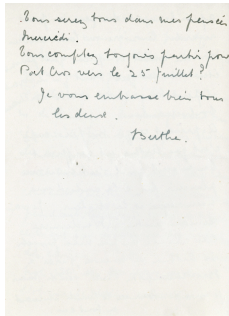 Vous serez tous dans mes pensées
mercredi.
Vous comptez toujours partir pour
Port Cros vers le 25 Juillet ?
Je vous embrasse bien tous
les deux.
Berthe.